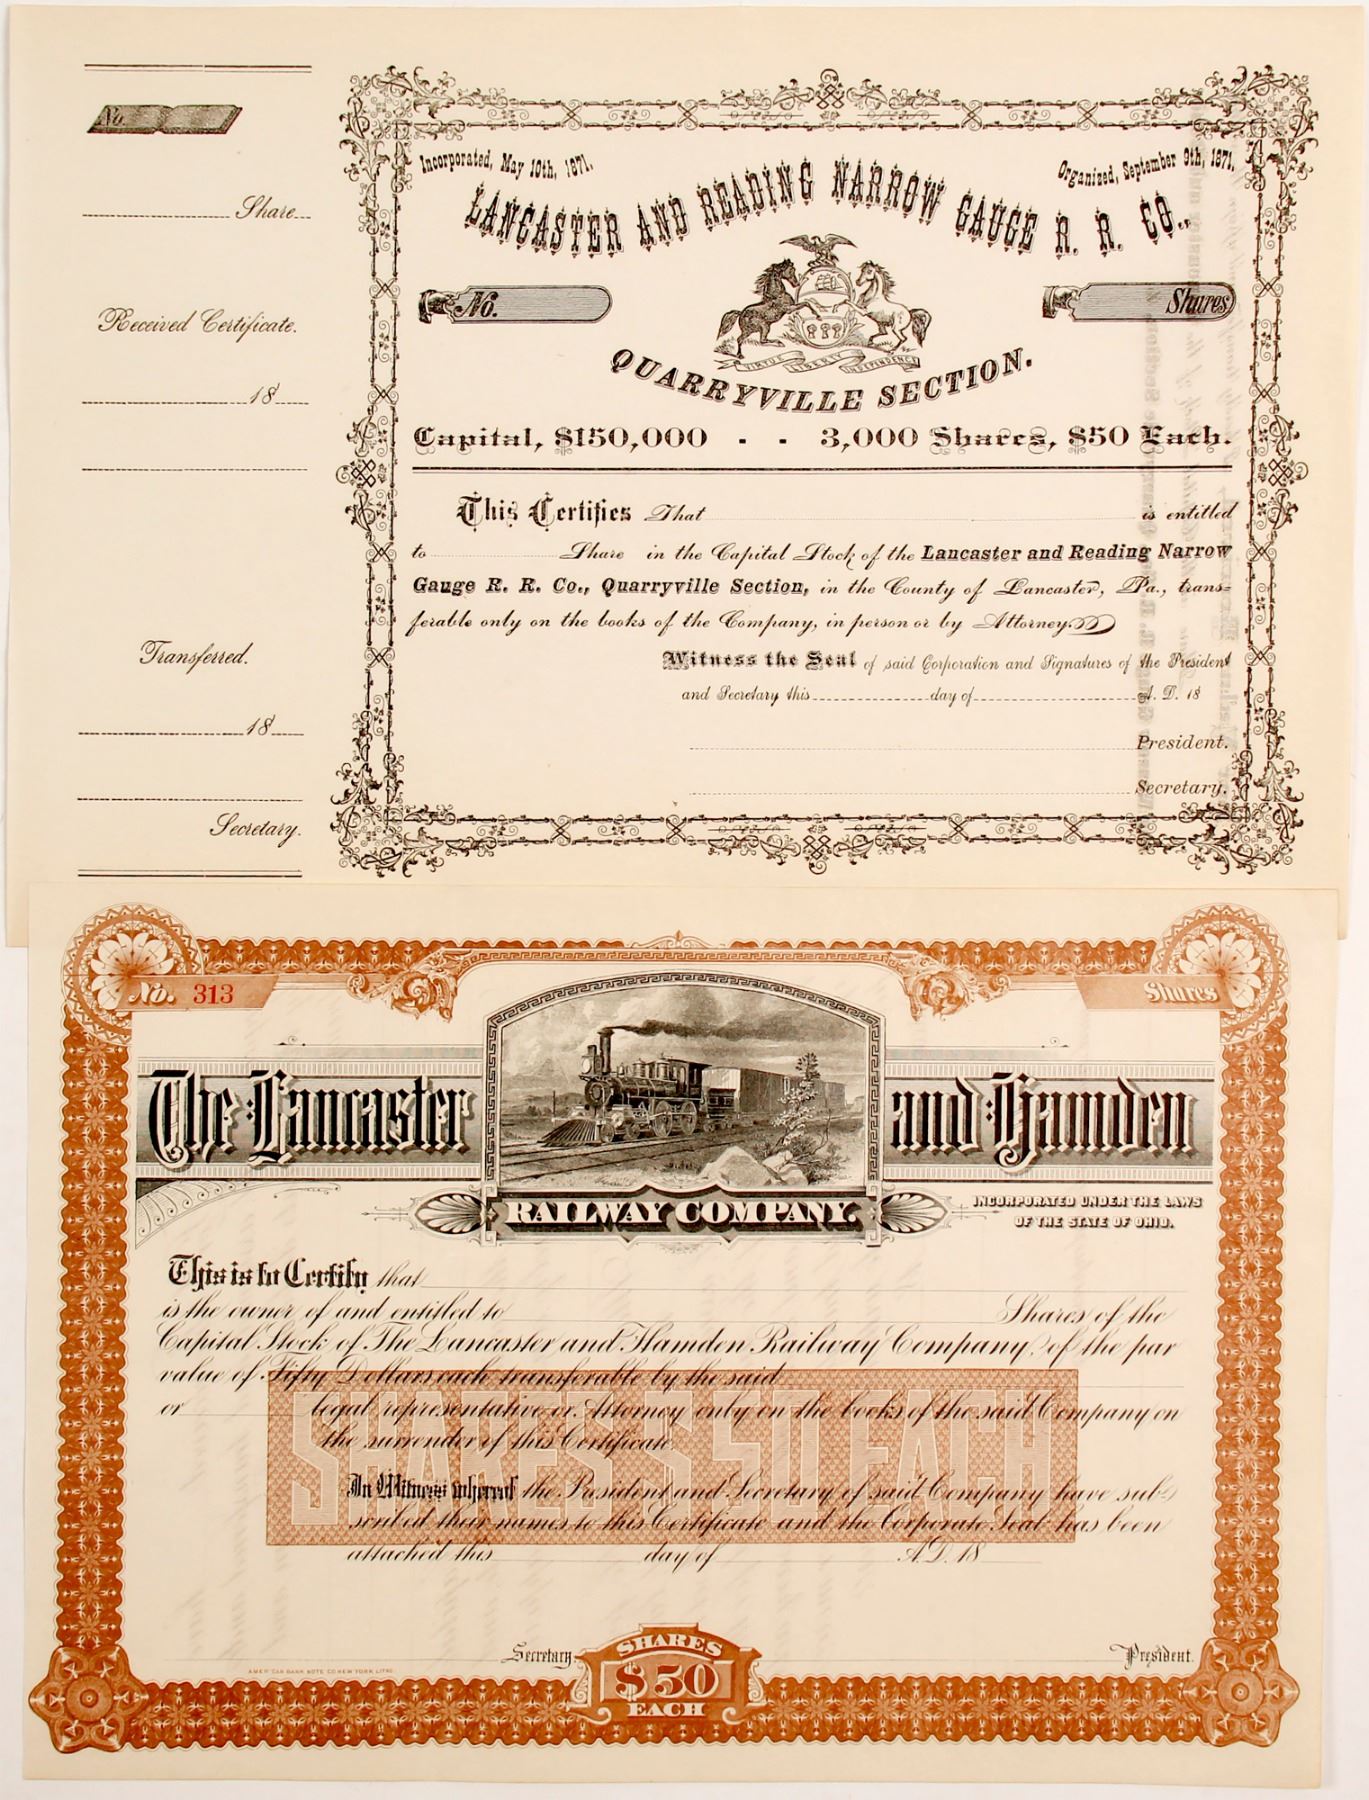 No.
Share
Received Certificate.
18
Transferred.
18
Secretary.
Incorporated, May 10th, 1871.
Organized, September 9th, 1871.
LANCASTER AND READING NARROW GAUGE R. R. CO.,
No.
Shares
VIRTUE LIBERTY INDEPENDENCE
QUARRYVILLE SECTION.
Capital, $150,000 - - 3,000 Shares, $50 Each.
This Certifies That is entitled
to Share in the Capital Stock of the Lancaster and Reading Narrow
Gauge R. R. Co., Quarryville Section, in the County of Lancaster, Pa., trans=
ferable only on the books of the Company, in person or by Attorney.
Witness the Seal of said Corporation and Signatures of the President
and Secretary this day of A. D. 18
President.
Secretary.
No. 313
Shares
The Lancaster and Hamden
RAILWAY COMPANY.
INCORPORATED UNDER THE LAWS
OF THE STATE OF OHIO.
This is to Certify that
is the owner of and entitled to Shares of the
Capital Stock of The Lancaster and Hamden Railway Company, of the par
value of Fifty Dollars each transferable by the said
or legal representative or Attorney only on the books of the said Company on
the surrender of this Certificate
SHARES $50 EACH
In Witness whereof the President and Secretary of said Company have sub-
scribed their names to this Certificate and the Corporate Seal has been
attached this day of A.D. 18
Secretary.
President.
AMERICAN BANK NOTE CO. NEW YORK LITHO.
SHARES
$50
EACH